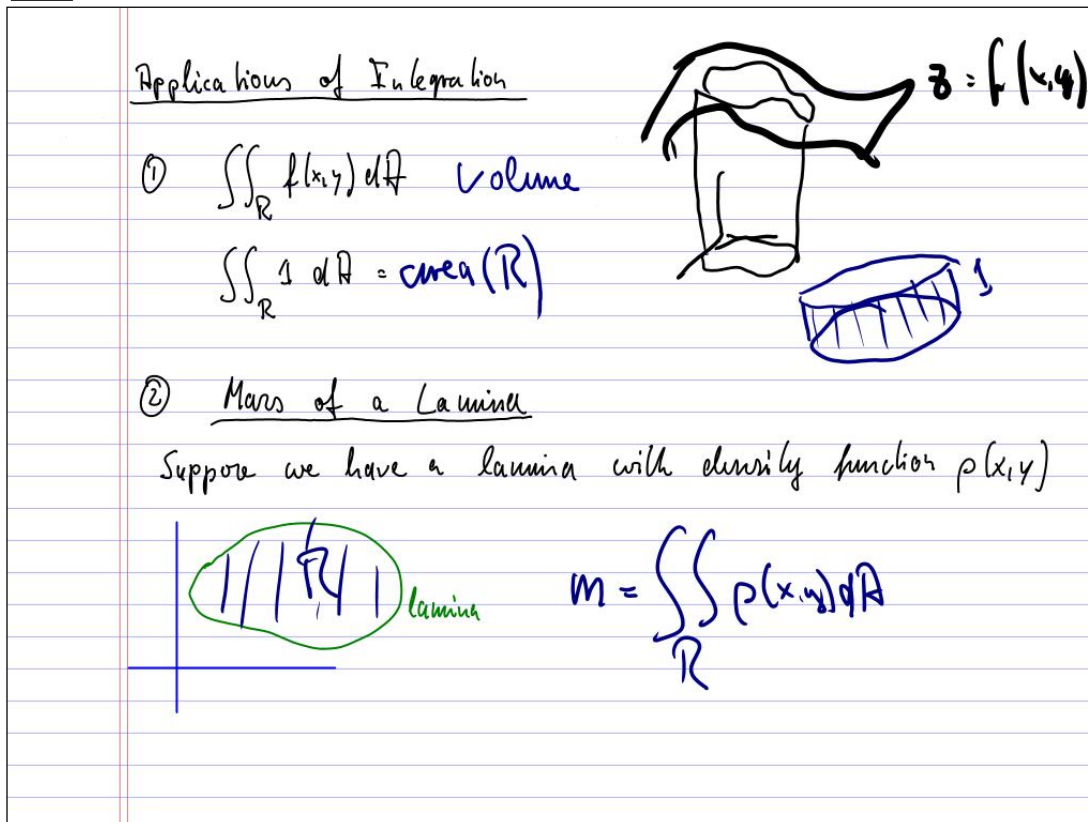 Applications of Integration
z = f(x,y)
① ∬_R f(x,y) dA Volume
∬_R 1 dA = area(R)
1
② Mass of a Lamina
Suppose we have a lamina with density function ρ(x,y)
R
lamina
m = ∬_R ρ(x,y) dA